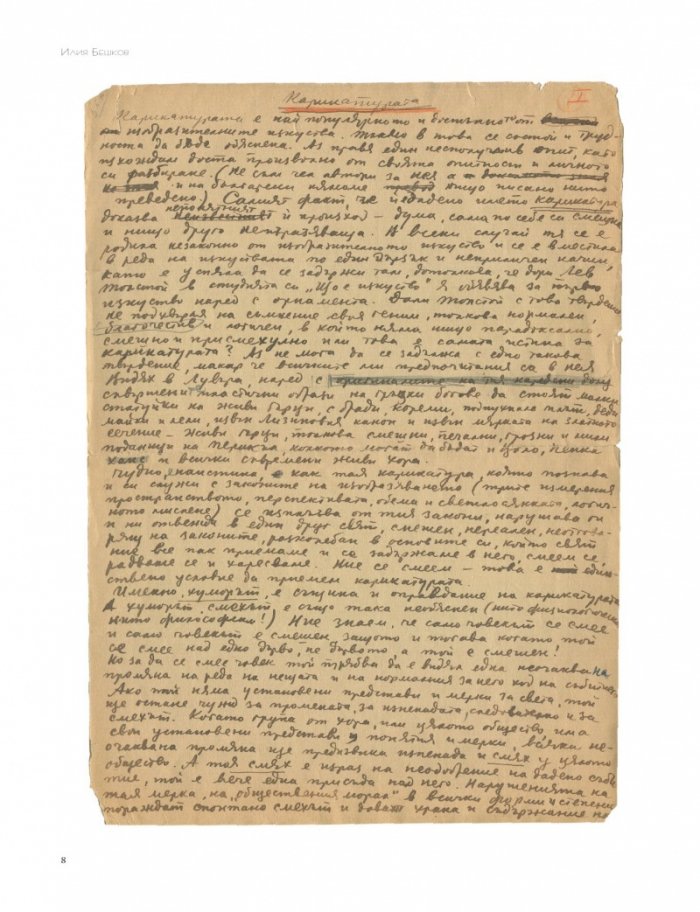 Илия Бешков
Карикатурата
I
Карикатурата е най популярното и достъпно от
изобразителните изкуства. Тъкмо в това се състои и труд-
ността да бъде обяснена. Аз правя един несполучлив опит, като
изхождам доста произволно от своята опитност и личното
си разбиране. (Не съм чел автори за нея а
и на български нямаме нищо писано нито
преведено) Самият факт, че ѝ е дадено името карикатура
непонятният
доказва ѝ произход – дума, сама по себе си смешна
и нищо друго неизразяваща. В всеки случай тя се е
родила незаконно от изобразителното изкуство и се е вместила
в реда на изкуствата по един дързък и неприличен начин,
като е успяла да се задържи там, дотолкова, че дори Лев
Толстой в студията си "Що е изкуство" я обявява за първо
изкуство наред с орнамента. Дали Толстой с това твърдение
не подхвърля на съмнение своя гений, толкова нормален,
благочестив и логичен, в който няма нищо парадоксално,
смешно и присмехулно или това е самата истина за
карикатурата? Аз не мога да се задължа с едно такова
твърдение, макар че всичките ми предпочитания са в нея
Видях в Лувъра, наред с
съвършени пластични образи на гръцки богове да стоят малки
статуйки на живи гърци, с бради, кореми,
майки и лели, извън Лизиповия канон и извън мярката на златното
сечение – живи гърци, толкова смешни, печални, грозни и мили
поданици на Перикъл, колкото могат да бъдат и
и всички съвремени живи хора.
Чудно, наистина, как тая карикатура, която познава
и си служи с законите на изобразяването (трите измерения
пространството, перспективата, обема и светлосянката, логич-
ното мислене) се изплъзва от тия закони, нарушава ги
и ни отвежда в един друг свят, смешен, нереален, неотгова-
рящ на законите, разколебан в основите си, който свят
ние все пак приемаме и се задържаме в него, смеем се,
радваме се и харесваме. Ние се смеем – това е един-
ствено условие да приемем карикатурата.
Именно, хуморът, е същина и оправдание на карикатурата
А хуморът, смехът, е също така необясним (нито физиологически
нито философски!) Ние знаем, че само човекът се смее
и само човекът е смешен, защото и тогава когато той
се смее над едно дърво, не дървото, а той е смешен!
Но за да се смее човек той трябва да е видял една неочаквана
промяна на реда на нещата и на нормалния за него ход на събитията
Ако той няма установени представи и мерки за света, той
ще остане чужд за промената, за изненадата, следователно и за
смехът. Когато група от хора, или цялото общество, има
свои установени представи и понятия и мерки, всяка не-
очаквана промяна ще предизвика изненада и смях у цялото
общество. А тоя смях е израз на неодобрение на дадено съби-
тие, той е вече една присъда над него. Нарушенията на
тая мерка, на "обществения морал" в всички форми и степени
пораждат спонтано смехът и дават храна и съдържание на
8